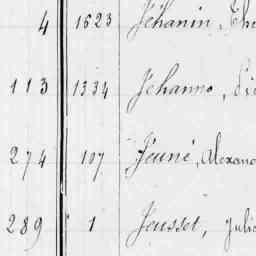 4 1623 Jéhanin,
113 1334 Jehanno,
274 107 Jeuné, Alexand
289 1 Jeusset, Julie